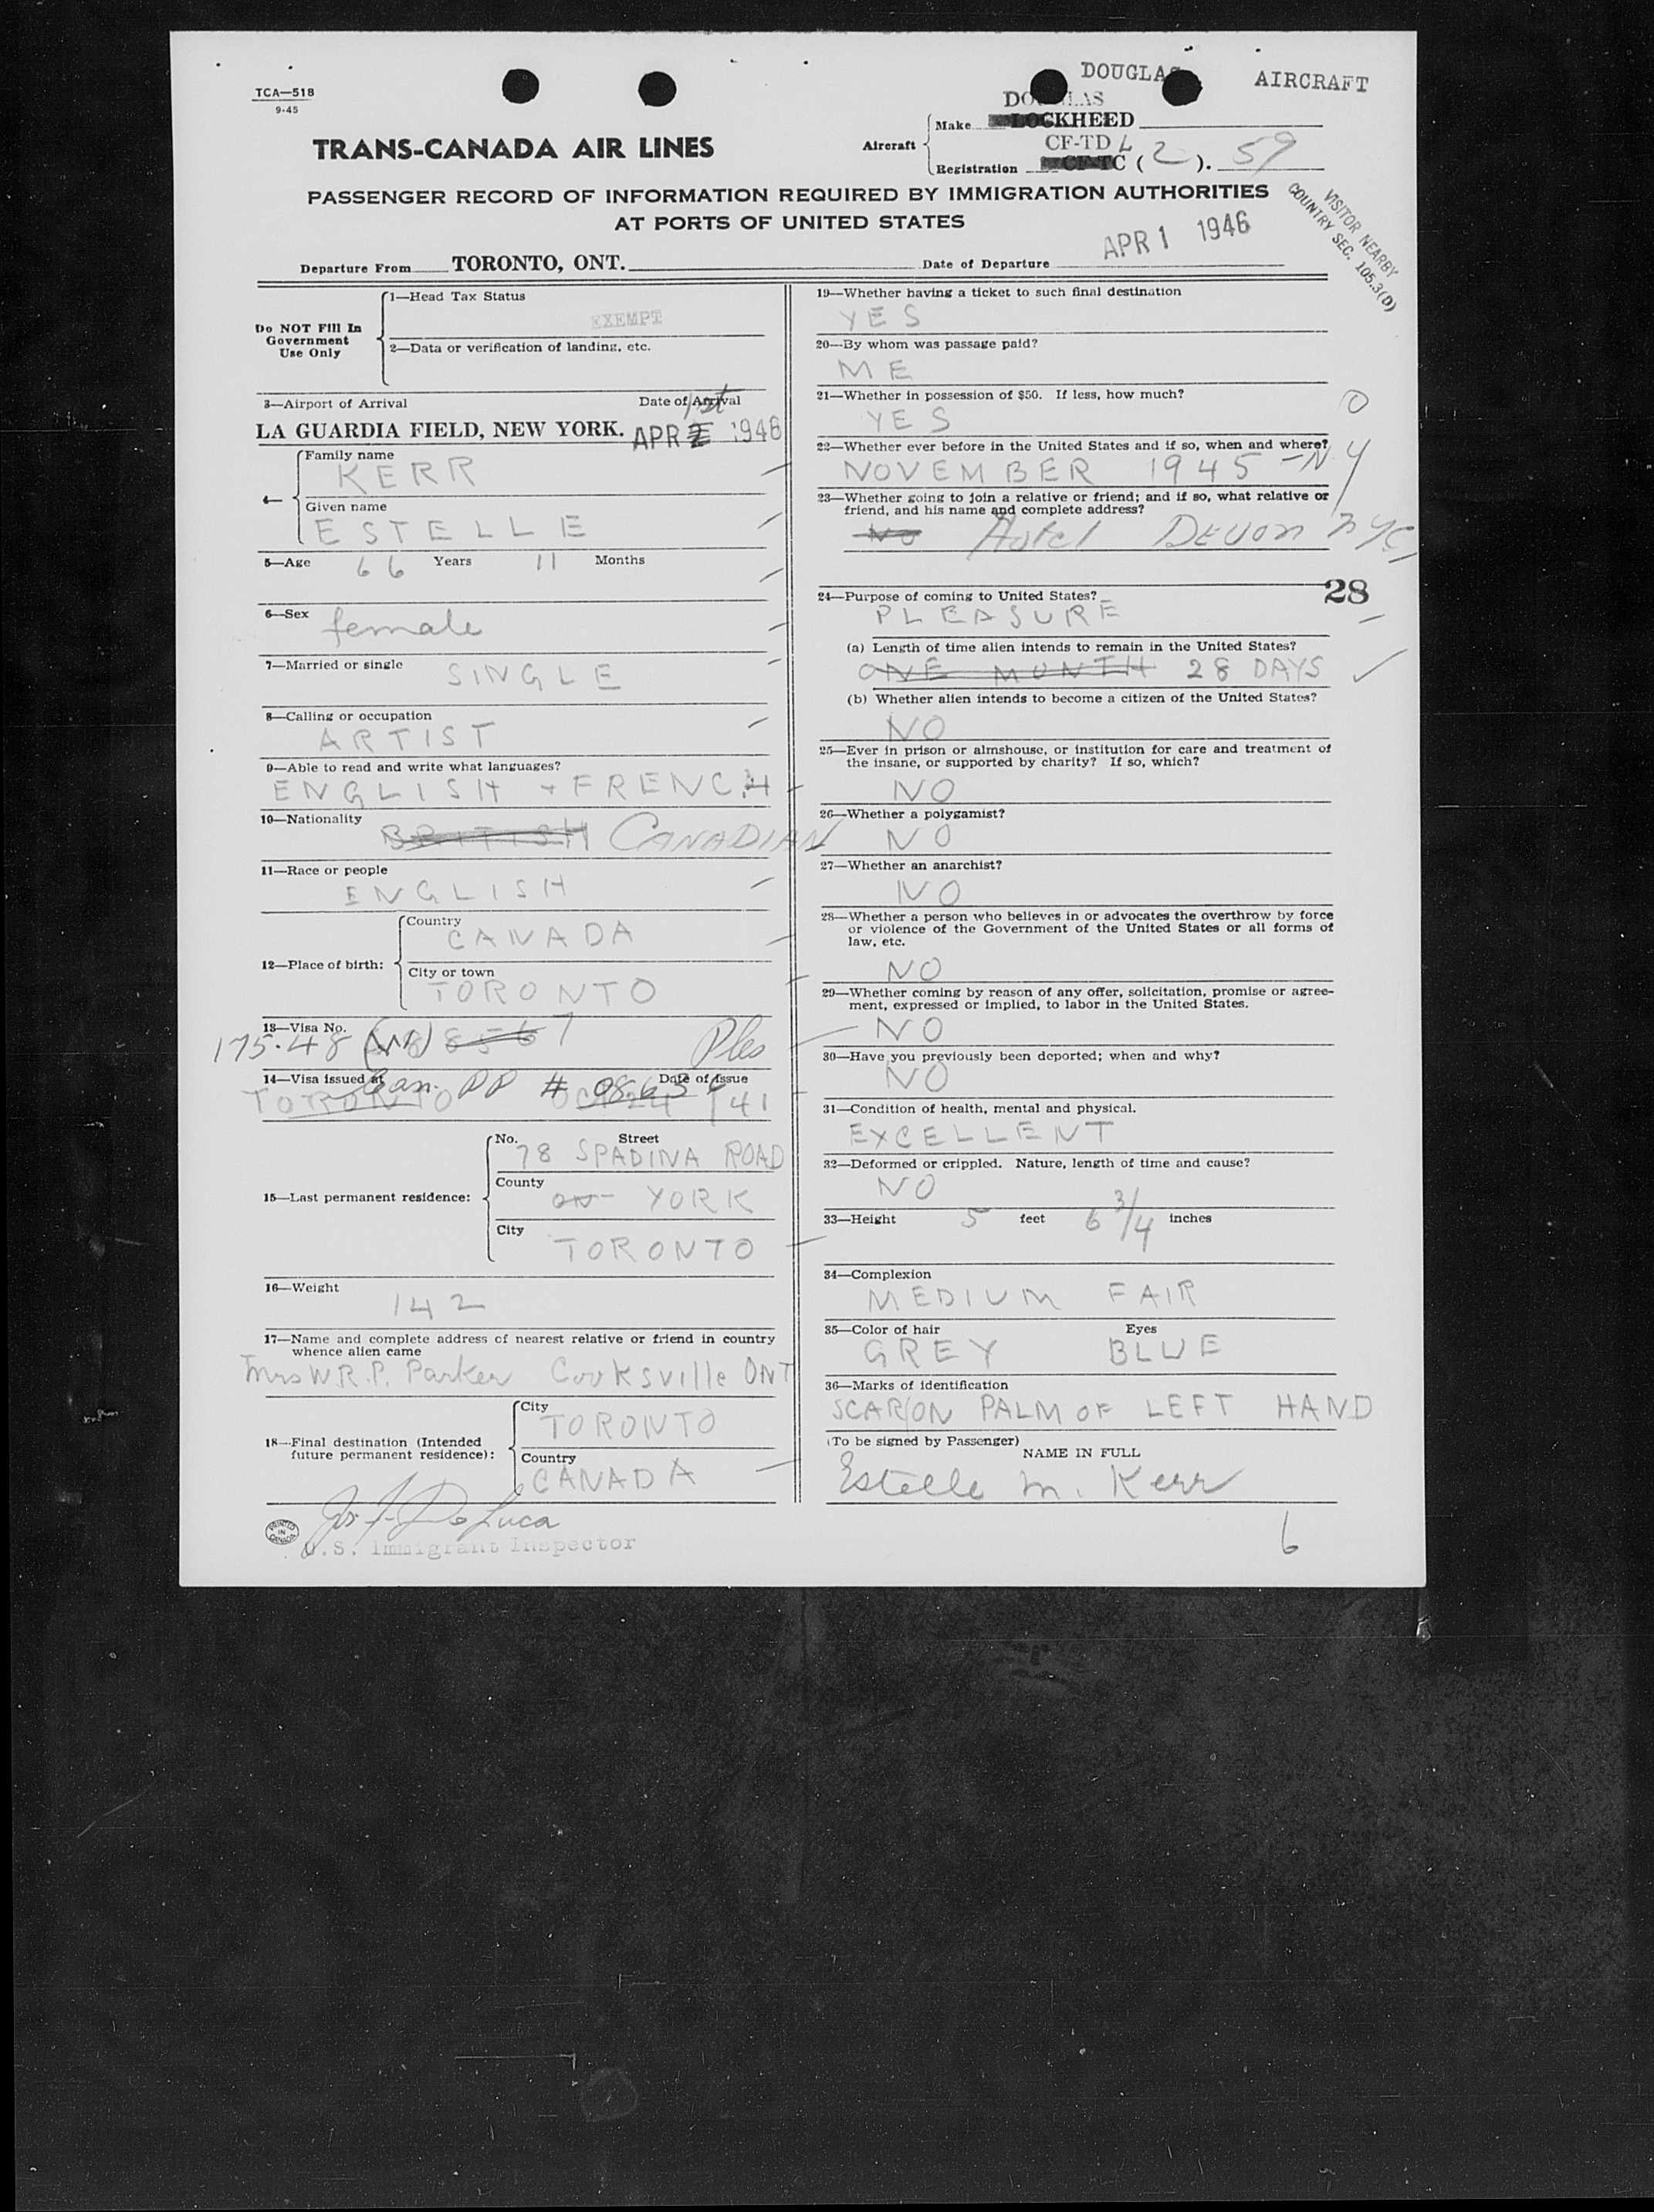 TCA—518
9-45
DOUGLAS AIRCRAFT
DOUGLAS
TRANS-CANADA AIR LINES
Aircraft
Make LOCKHEED
CF-TD L
Registration CF-TC ( 2 ). 59
PASSENGER RECORD OF INFORMATION REQUIRED BY IMMIGRATION AUTHORITIES
AT PORTS OF UNITED STATES
VISITOR NEARBY
COUNTRY SEC. 105.3(D)
Departure From TORONTO, ONT. Date of Departure APR 1 1946
Do NOT Fill In
Government
Use Only
1—Head Tax Status
EXEMPT
2—Data or verification of landing, etc.
3—Airport of Arrival Date of Arrival
1st
LA GUARDIA FIELD, NEW YORK. APR 2 1946
4—
Family name
KERR
Given name
ESTELLE
5—Age 66 Years 11 Months
6—Sex female
7—Married or single SINGLE
8—Calling or occupation
ARTIST
9—Able to read and write what languages?
ENGLISH + FRENCH
10—Nationality
BRITISH CANADIAN
11—Race or people
ENGLISH
12—Place of birth:
Country
CANADA
City or town
TORONTO
13—Visa No.
175.48 Ples
14—Visa issued at Date of Issue
Can. PP #
TORONTO OCT 24 41
15—Last permanent residence:
No. Street
78 SPADINA ROAD
County
ON YORK
City
TORONTO
16—Weight
142
17—Name and complete address of nearest relative or friend in country
whence alien came
Mrs W.R.P. Parker Cooksville ONT
18—Final destination (Intended
future permanent residence):
City
TORONTO
Country
CANADA
Jos. F. De Luca
U.S. Immigrant Inspector
PRINTED
IN
CANADA
19—Whether having a ticket to such final destination
YES
20—By whom was passage paid?
ME
21—Whether in possession of $50. If less, how much?
YES
0
22—Whether ever before in the United States and if so, when and where?
NOVEMBER 1945 - N Y
23—Whether going to join a relative or friend; and if so, what relative or
friend, and his name and complete address?
NO Hotel DEVON NYC
28
24—Purpose of coming to United States?
PLEASURE
(a) Length of time alien intends to remain in the United States?
ONE MONTH 28 DAYS
(b) Whether alien intends to become a citizen of the United States?
NO
25—Ever in prison or almshouse, or institution for care and treatment of
the insane, or supported by charity? If so, which?
NO
26—Whether a polygamist?
NO
27—Whether an anarchist?
NO
28—Whether a person who believes in or advocates the overthrow by force
or violence of the Government of the United States or all forms of
law, etc.
NO
29—Whether coming by reason of any offer, solicitation, promise or agree-
ment, expressed or implied, to labor in the United States.
NO
30—Have you previously been deported; when and why?
NO
31—Condition of health, mental and physical.
EXCELLENT
32—Deformed or crippled. Nature, length of time and cause?
NO
33—Height 5 feet 6 3/4 inches
34—Complexion
MEDIUM FAIR
35—Color of hair Eyes
GREY BLUE
36—Marks of identification
SCAR ON PALM OF LEFT HAND
(To be signed by Passenger)
NAME IN FULL
Estelle M. Kerr
6